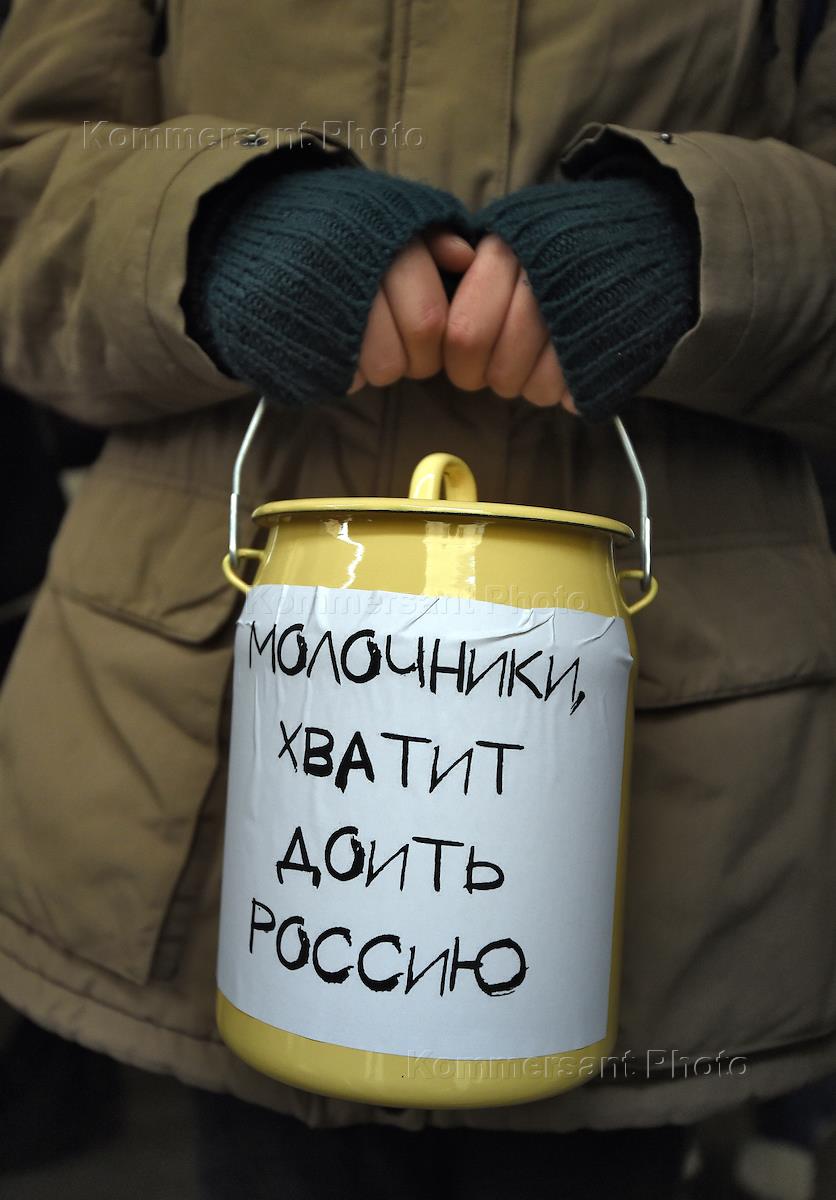 Kommersant Photo
Kommersant Photo
МОЛОЧНИКИ,
ХВАТИТ
ДОИТЬ
РОССИЮ
Kommersant Photo